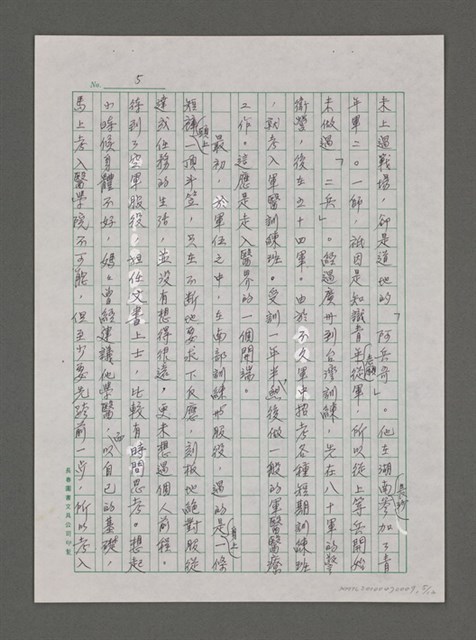 No. 5
未上過戰場，卻是道地的「阿兵哥」。他在湖南參加了青
年軍二○一師，祇因是知識青年志願從軍，所以從上等兵開始，
未做過「二兵」。經過廣州到台灣訓練，先在八十軍的警
衛營，後在五十四軍。由於不久軍中招考各種短期訓練班
，就考入軍醫訓練班。受訓一年半，然後做一般的軍醫醫療
工作。這應是走入醫界的一個開端。
最初，於軍伍之中，在南部訓練或服役，過的是一條
短褲，一頂斗笠，只在不斷地要求下反應，刻板地絕對服從
達成任務的生活，並沒有想得很遠，更未想過個人前程。
待到了空軍服役，担任文書上士，比較有時間思考。想起
小時候身體不好，媽媽曾經建議他學醫，以自己的基礎，
馬上考入醫學院不可能，但至少要先改前一步，所以考入
長春圖書文具公司印製